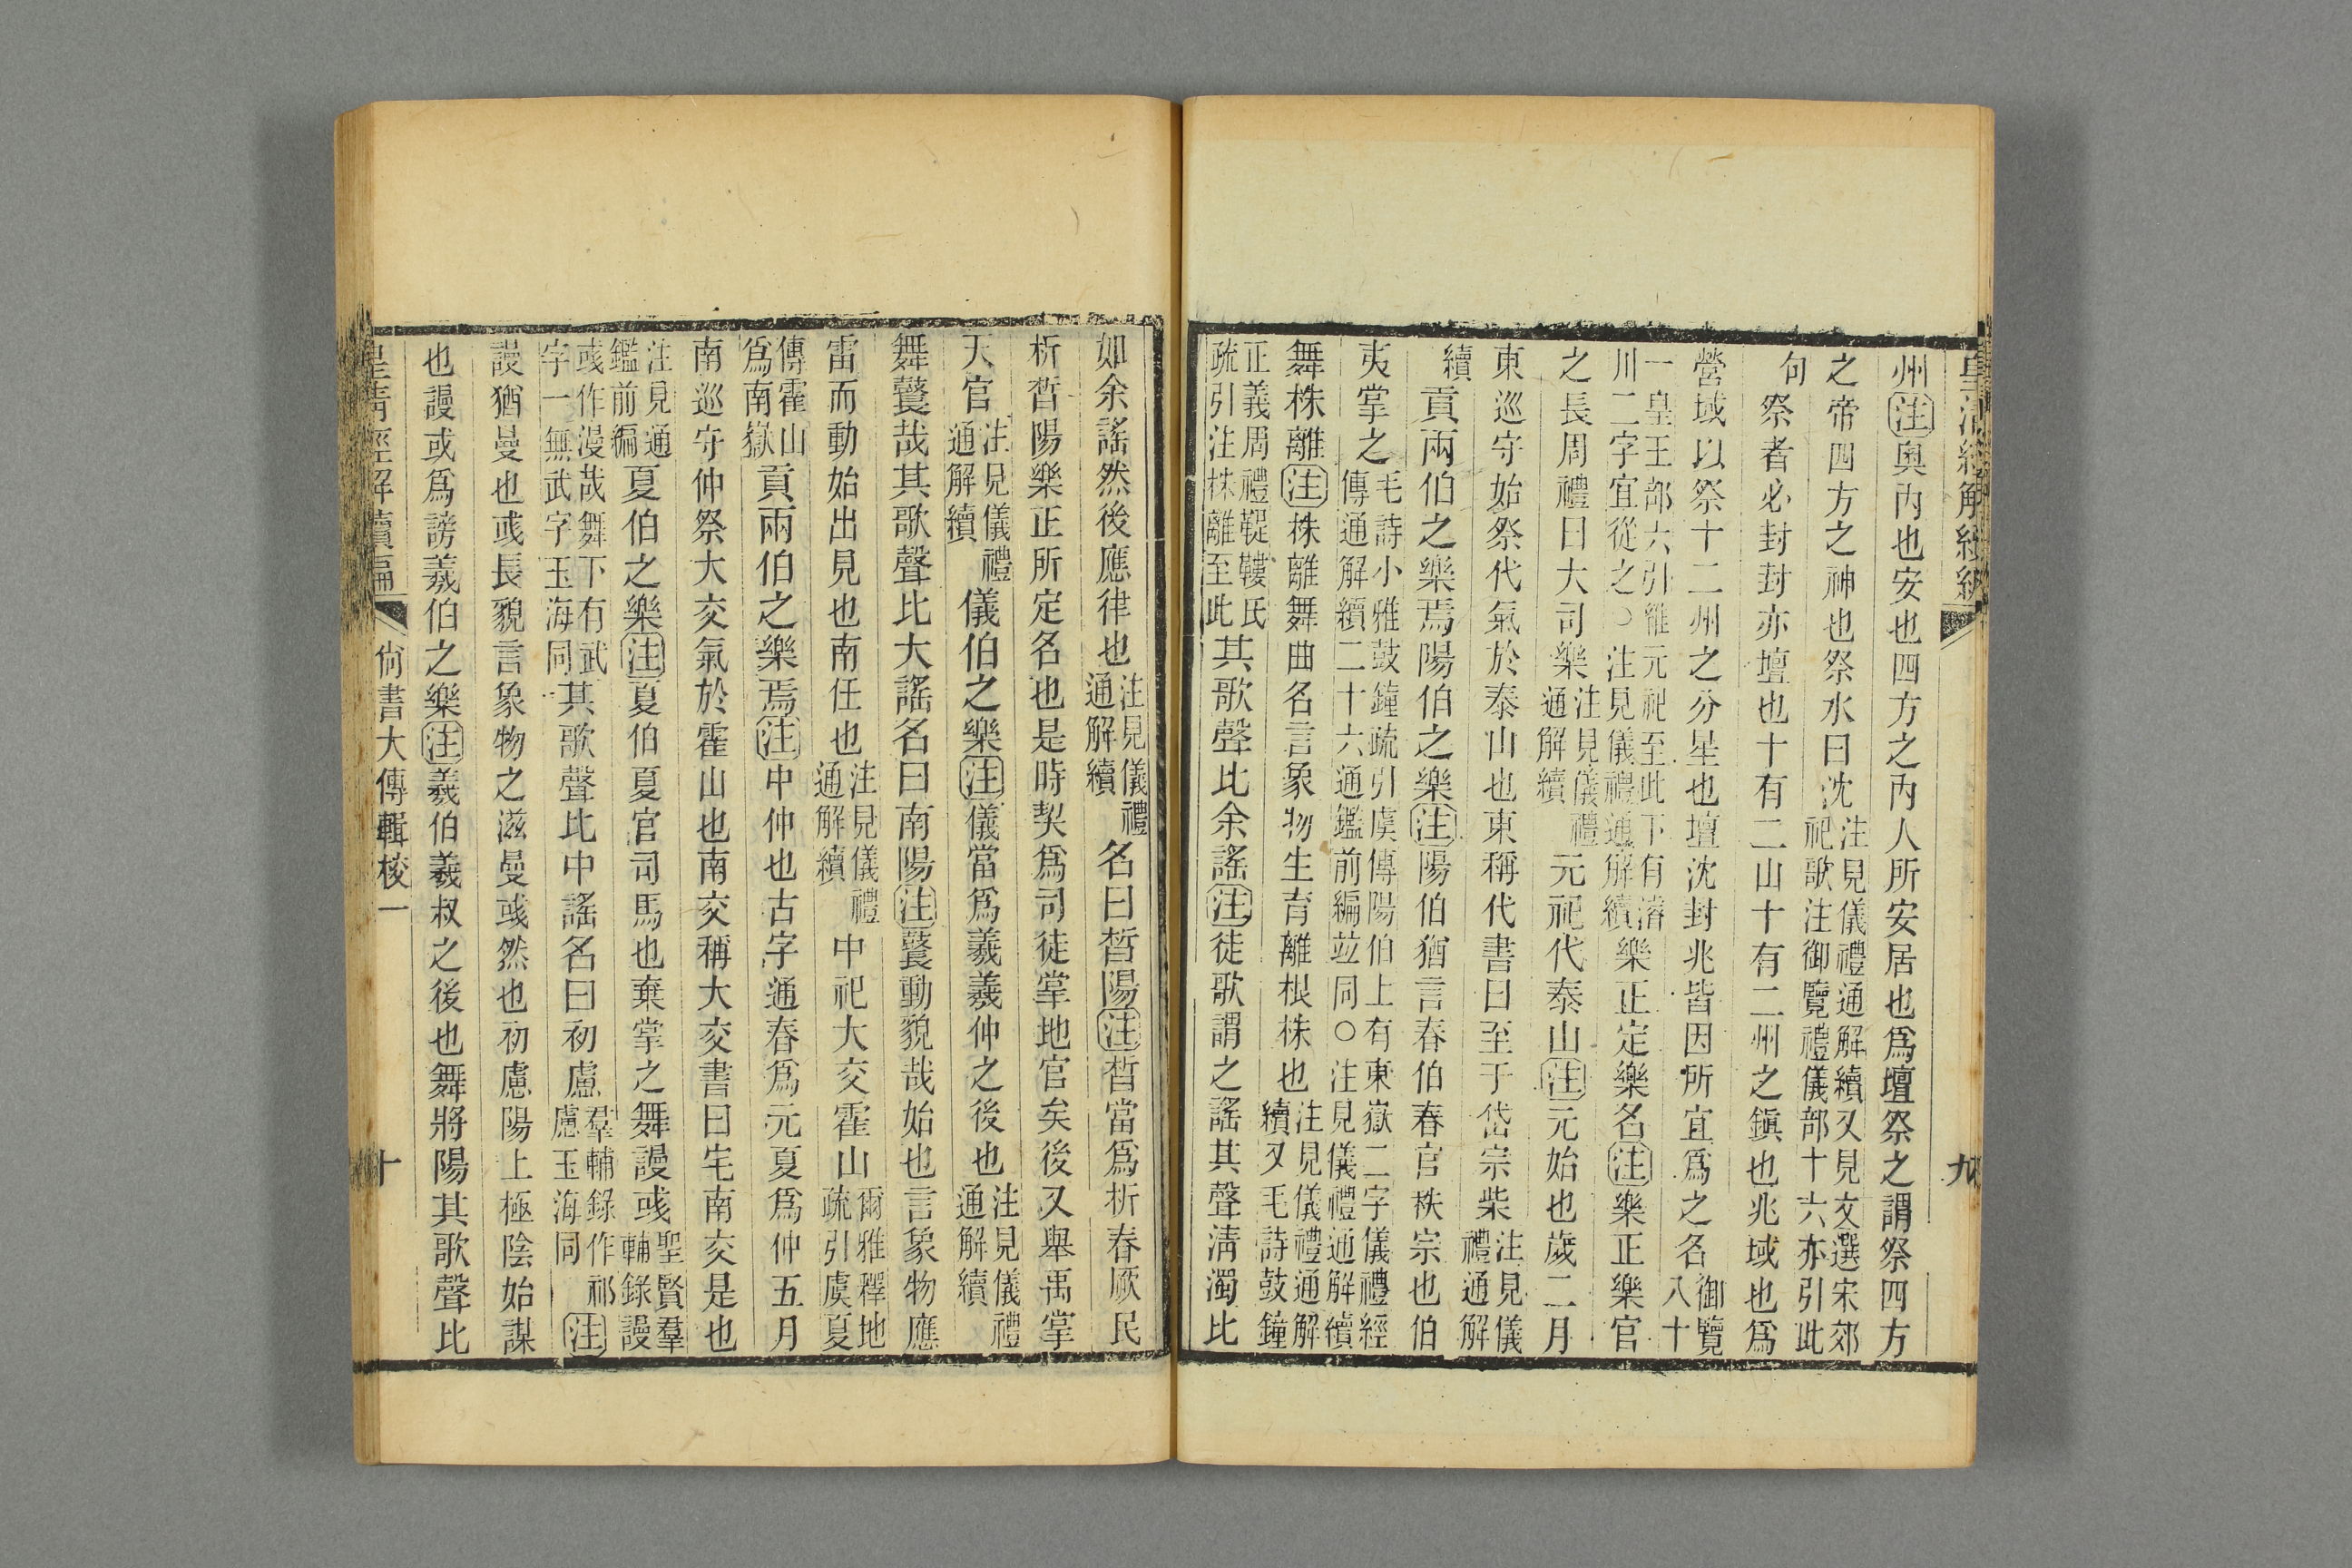 皇清經解續編
九
州注奧內也安也四方之內人所安居也爲壇祭之謂祭四方
之帝四方之神也祭水曰沈注見儀禮通解續又見文選宋郊祀歌注御覽禮儀部十六亦引此
句祭者必封封亦壇也十有二山十有二州之鎮也兆域也爲
營域以祭十二州之分星也壇沈封兆皆因所宜爲之名御覽八十
一皇王部六引維元祀至此下有濬川二字宜從之○注見儀禮通解續樂正定樂名注樂正樂官
之長周禮曰大司樂注見儀禮通解續元祀代泰山注元始也歲二月
東巡守始祭代氣於泰山也東稱代書曰至于岱宗柴注見儀禮通解
續貢兩伯之樂焉陽伯之樂注陽伯猶言春伯春官秩宗也伯
夷掌之毛詩小雅鼓鐘疏引虞傳陽伯上有東嶽二字儀禮經傳通解續二十六通鑑前編竝同○注見儀禮通解續
舞株離注株離舞曲名言象物生育離根株也注見儀禮通解續又毛詩鼓鐘
正義周禮鞮鞻氏疏引注株離至此其歌聲比余謠注徒歌謂之謠其聲淸濁比
如余謠然後應律也注見儀禮通解續名曰晳陽注晳當爲析春厥民
析晳陽樂正所定名也是時契爲司徒掌地官矣後又舉禹掌
天官注見儀禮通解續儀伯之樂注儀當爲羲羲仲之後也注見儀禮通解續
舞鼚哉其歌聲比大謠名曰南陽注鼚動貌哉始也言象物應
雷而動始出見也南任也注見儀禮通解續中祀大交霍山爾雅釋地疏引虞夏
傳霍山爲南嶽貢兩伯之樂焉注中仲也古字通春爲元夏爲仲五月
南巡守仲祭大交氣於霍山也南交稱大交書曰宅南交是也
注見通鑑前編夏伯之樂注夏伯夏官司馬也棄掌之舞謾彧聖賢羣輔錄謾
彧作漫哉舞下有武字一無武字玉海同其歌聲比中謠名曰初慮羣輔錄作祁慮玉海同注
謾猶曼也彧長貌言象物之滋曼彧然也初慮陽上極陰始謀
也謾或爲謗羲伯之樂注羲伯羲叔之後也舞將陽其歌聲比
皇淸經解續編
尙書大傳輯校一
十